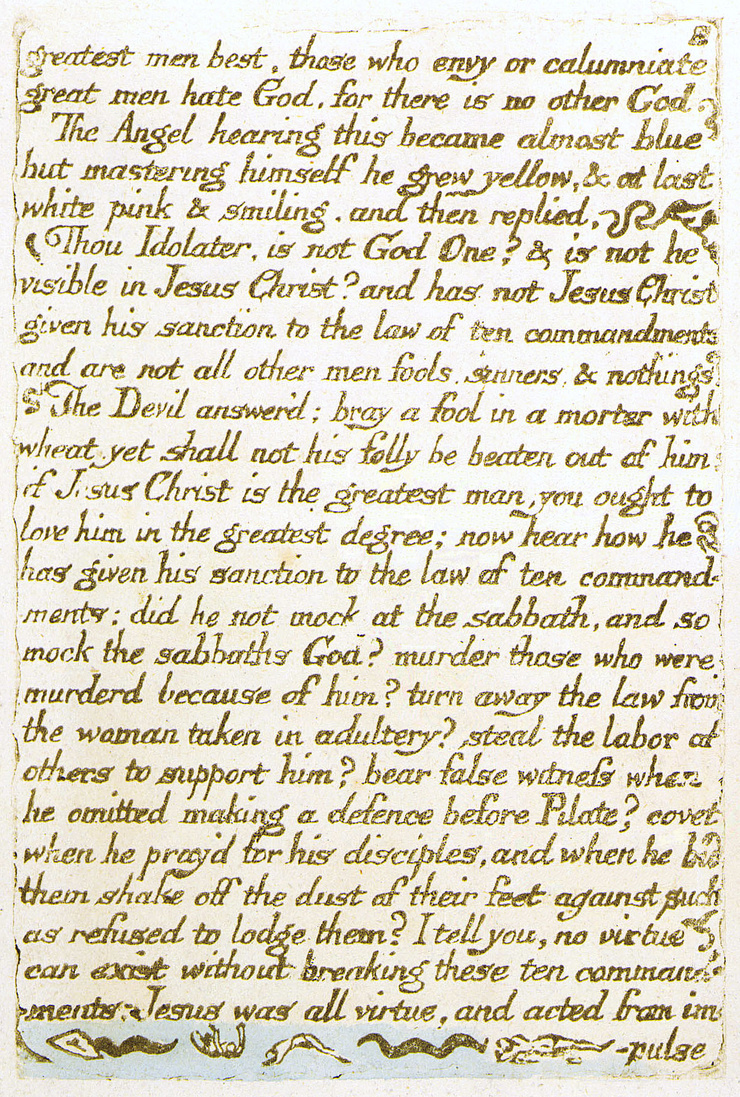 greatest men best, those who envy or calumniate
great men hate God, for there is no other God.
The Angel hearing this became almost blue
but mastering himself he grew yellow, & at last
white pink & smiling, and then replied,
Thou Idolater, is not God One? & is not he
visible in Jesus Christ? and has not Jesus Christ
given his sanction to the law of ten commandments
and are not all other men fools, sinners, & nothings
The Devil answer'd; bray a fool in a morter with
wheat, yet shall not his folly be beaten out of him;
if Jesus Christ is the greatest man, you ought to
love him in the greatest degree; now hear how he
has given his sanction to the law of ten command-
ments: did he not mock at the sabbath, and so
mock the sabbaths God? murder those who were
murderd because of him? turn away the law from
the woman taken in adultery? steal the labor of
others to support him? bear false witness when
he omitted making a defence before Pilate? covet
when he pray'd for his disciples, and when he bid
them shake off the dust of their feet against such
as refused to lodge them? I tell you, no virtue
can exist without breaking these ten command-
-ments: Jesus was all virtue, and acted from im
-pulse